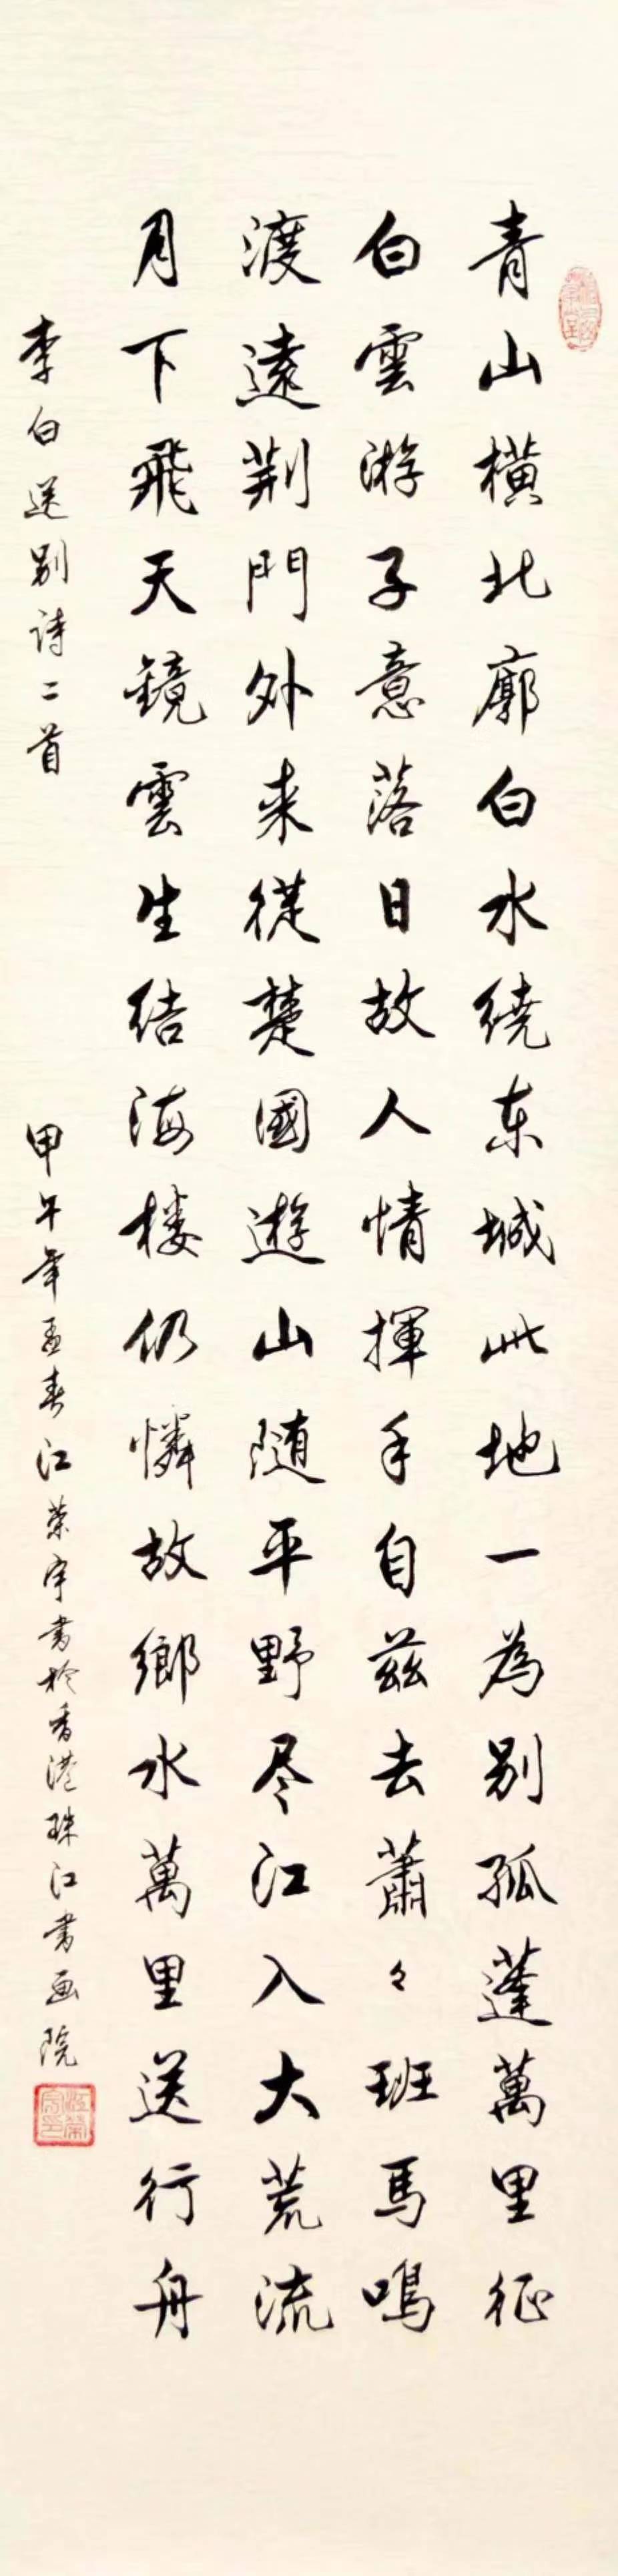 青山橫北廓白水繞东城此地一為别孤蓬萬里征
白雲游子意落日故人情揮手自茲去蕭々班馬鳴
渡遠荆門外来從楚國遊山随平野尽江入大荒流
月下飛天鏡雲生结海楼仍憐故鄉水萬里送行舟
李白送别诗二首
甲午年孟春江荣宇書於香港珠江書画院